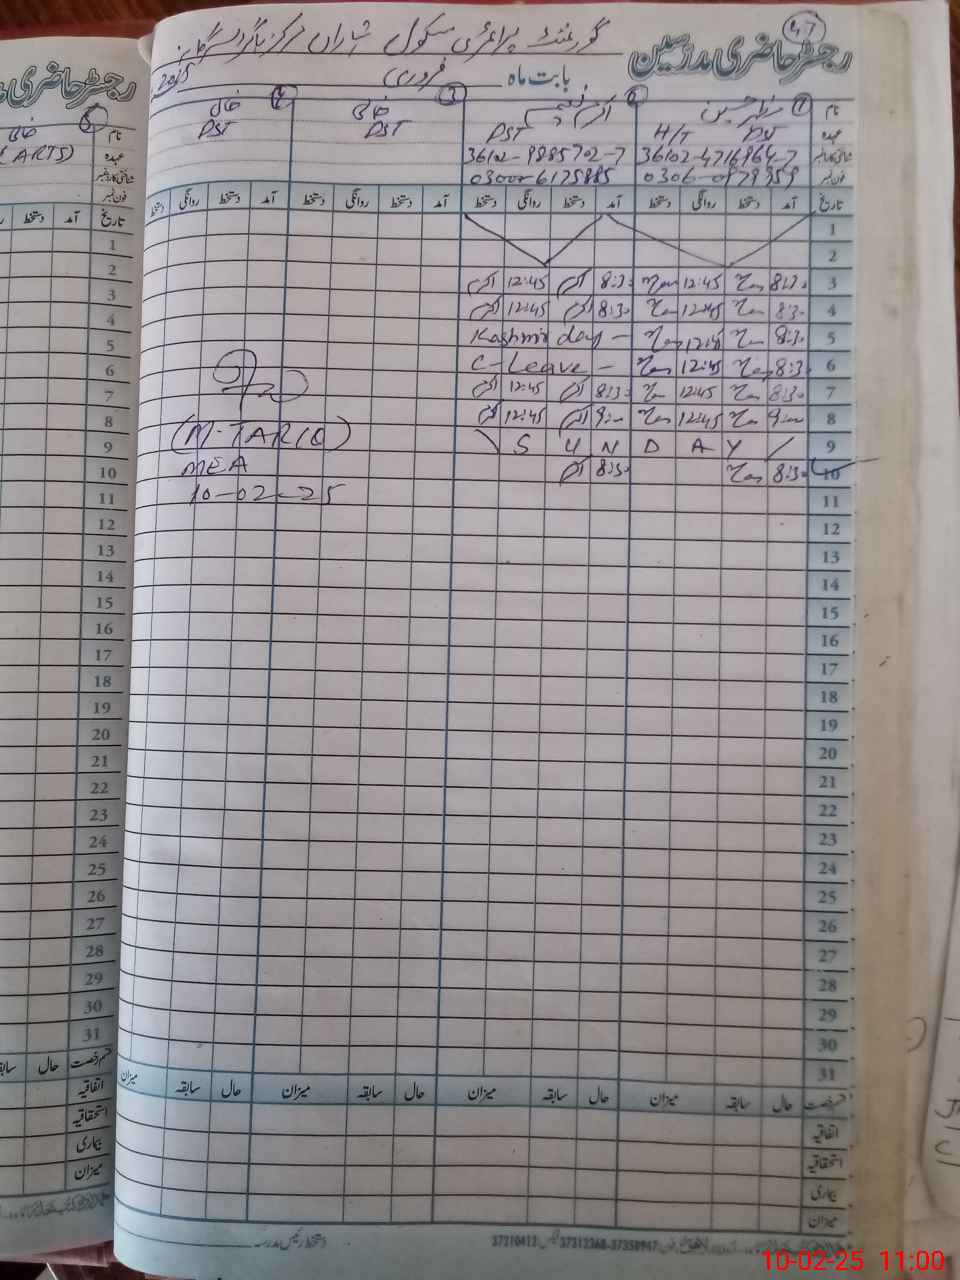 47
رجسٹر حاضری مدرسین
گورنمنٹ پرائمری سکول
بابت ماہ فروری 2025
نام
عہدہ H/T PST PST PST PST
شناختی کارڈ نمبر 36102-4716964-7 36102-9885702-7
فون نمبر 0306-0979959 0300-6175885
تاریخ آمد دستخط روانگی دستخط آمد دستخط روانگی دستخط آمد دستخط روانگی دستخط آمد دستخط روانگی دستخط
1
2
3 8:30 12:45 8:30 12:45
4 8:30 12:45 8:30 12:45
5 8:30 12:45 Kashmir day -
6 8:30 12:45 C-Leave -
7 8:30 12:45 8:30 12:45
8 9:00 12:45 9:00 12:45
9 S U N D A Y
10 8:30 8:30
11
12
13
14
15
16
17
18
19
20
21
22
23
24
25
26
27
28
29
30
31
(M-TARIQ)
MEA
10-02-25
قسم رخصت حال سابقہ میزان حال سابقہ میزان حال سابقہ میزان حال سابقہ میزان
اتفاقیہ
استحقاقیہ
بیماری
میزان
دستخط رئیس مدرسہ
رجسٹر حاضری
(ARTS)
نام
عہدہ
شناختی کارڈ نمبر
فون نمبر
تاریخ آمد دستخط
1
2
3
4
5
6
7
8
9
10
11
12
13
14
15
16
17
18
19
20
21
22
23
24
25
26
27
28
29
30
31
قسم رخصت حال سابقہ
اتفاقیہ
استحقاقیہ
بیماری
میزان
10-02-25 11:00